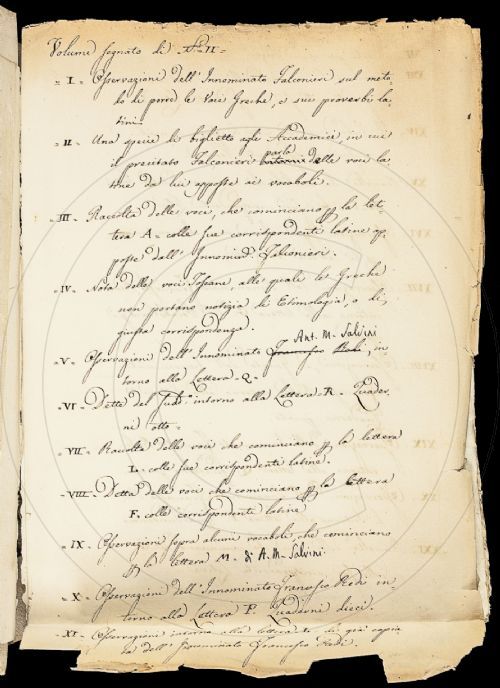 Volume segnato di N° II =
= I = Osservazioni dell' Innominato Falconieri sul meto-
do di porre le Voci Greche, e sui proverbi la-
tini -
= II = Una specie di biglietto agli Accademici, in cui
il precitato Falconieri parla delle voci la-
tine da lui apposte ai vocaboli.
= III = Raccolta delle voci, che cominciano p la let-
tera A = colle sue corrispondenti latine ap-
poste dall' Innominato Falconieri.
= IV = Nota delle voci Toscane, alle quali le Greche
non portano notizia di Etimologia, o di
giusta corrispondenza.
Ant. M. Salvini
= V = Osservazioni dell' Innominato Francesco Redi, in-
torno alla Lettera = Q =
= VI = Dette del Sud.° intorno alla Lettera = R = Quader-
ni otto =
= VII = Raccolta delle voci che cominciano p la lettera
L = colle sue corrispondenti latine.
= VIII = Detta delle voci che cominciano p la lettera
F. colle corrispondenti latine
= IX = Osservazioni sopra alcuni vocaboli, che cominciano
p la lettera M = di A. M. Salvini
= X = Osservazioni dell' Innominato Francesco Redi in-
torno alla Lettera P. Quaderni dieci.
= XI = Osservazioni intorno alla lettera di già copia-
ta dell' Innominato Francesco Redi.